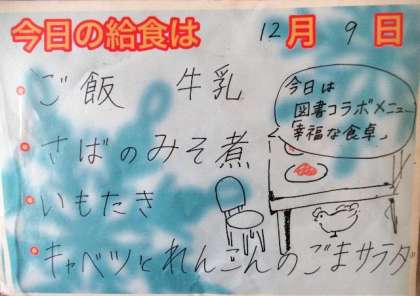 今日の給食は 12月 9日
ご飯 牛乳
さばのみそ煮
いもたき
キャベツとれんこんのごまサラダ
今日は
図書コラボメニュー
「幸福な食卓」